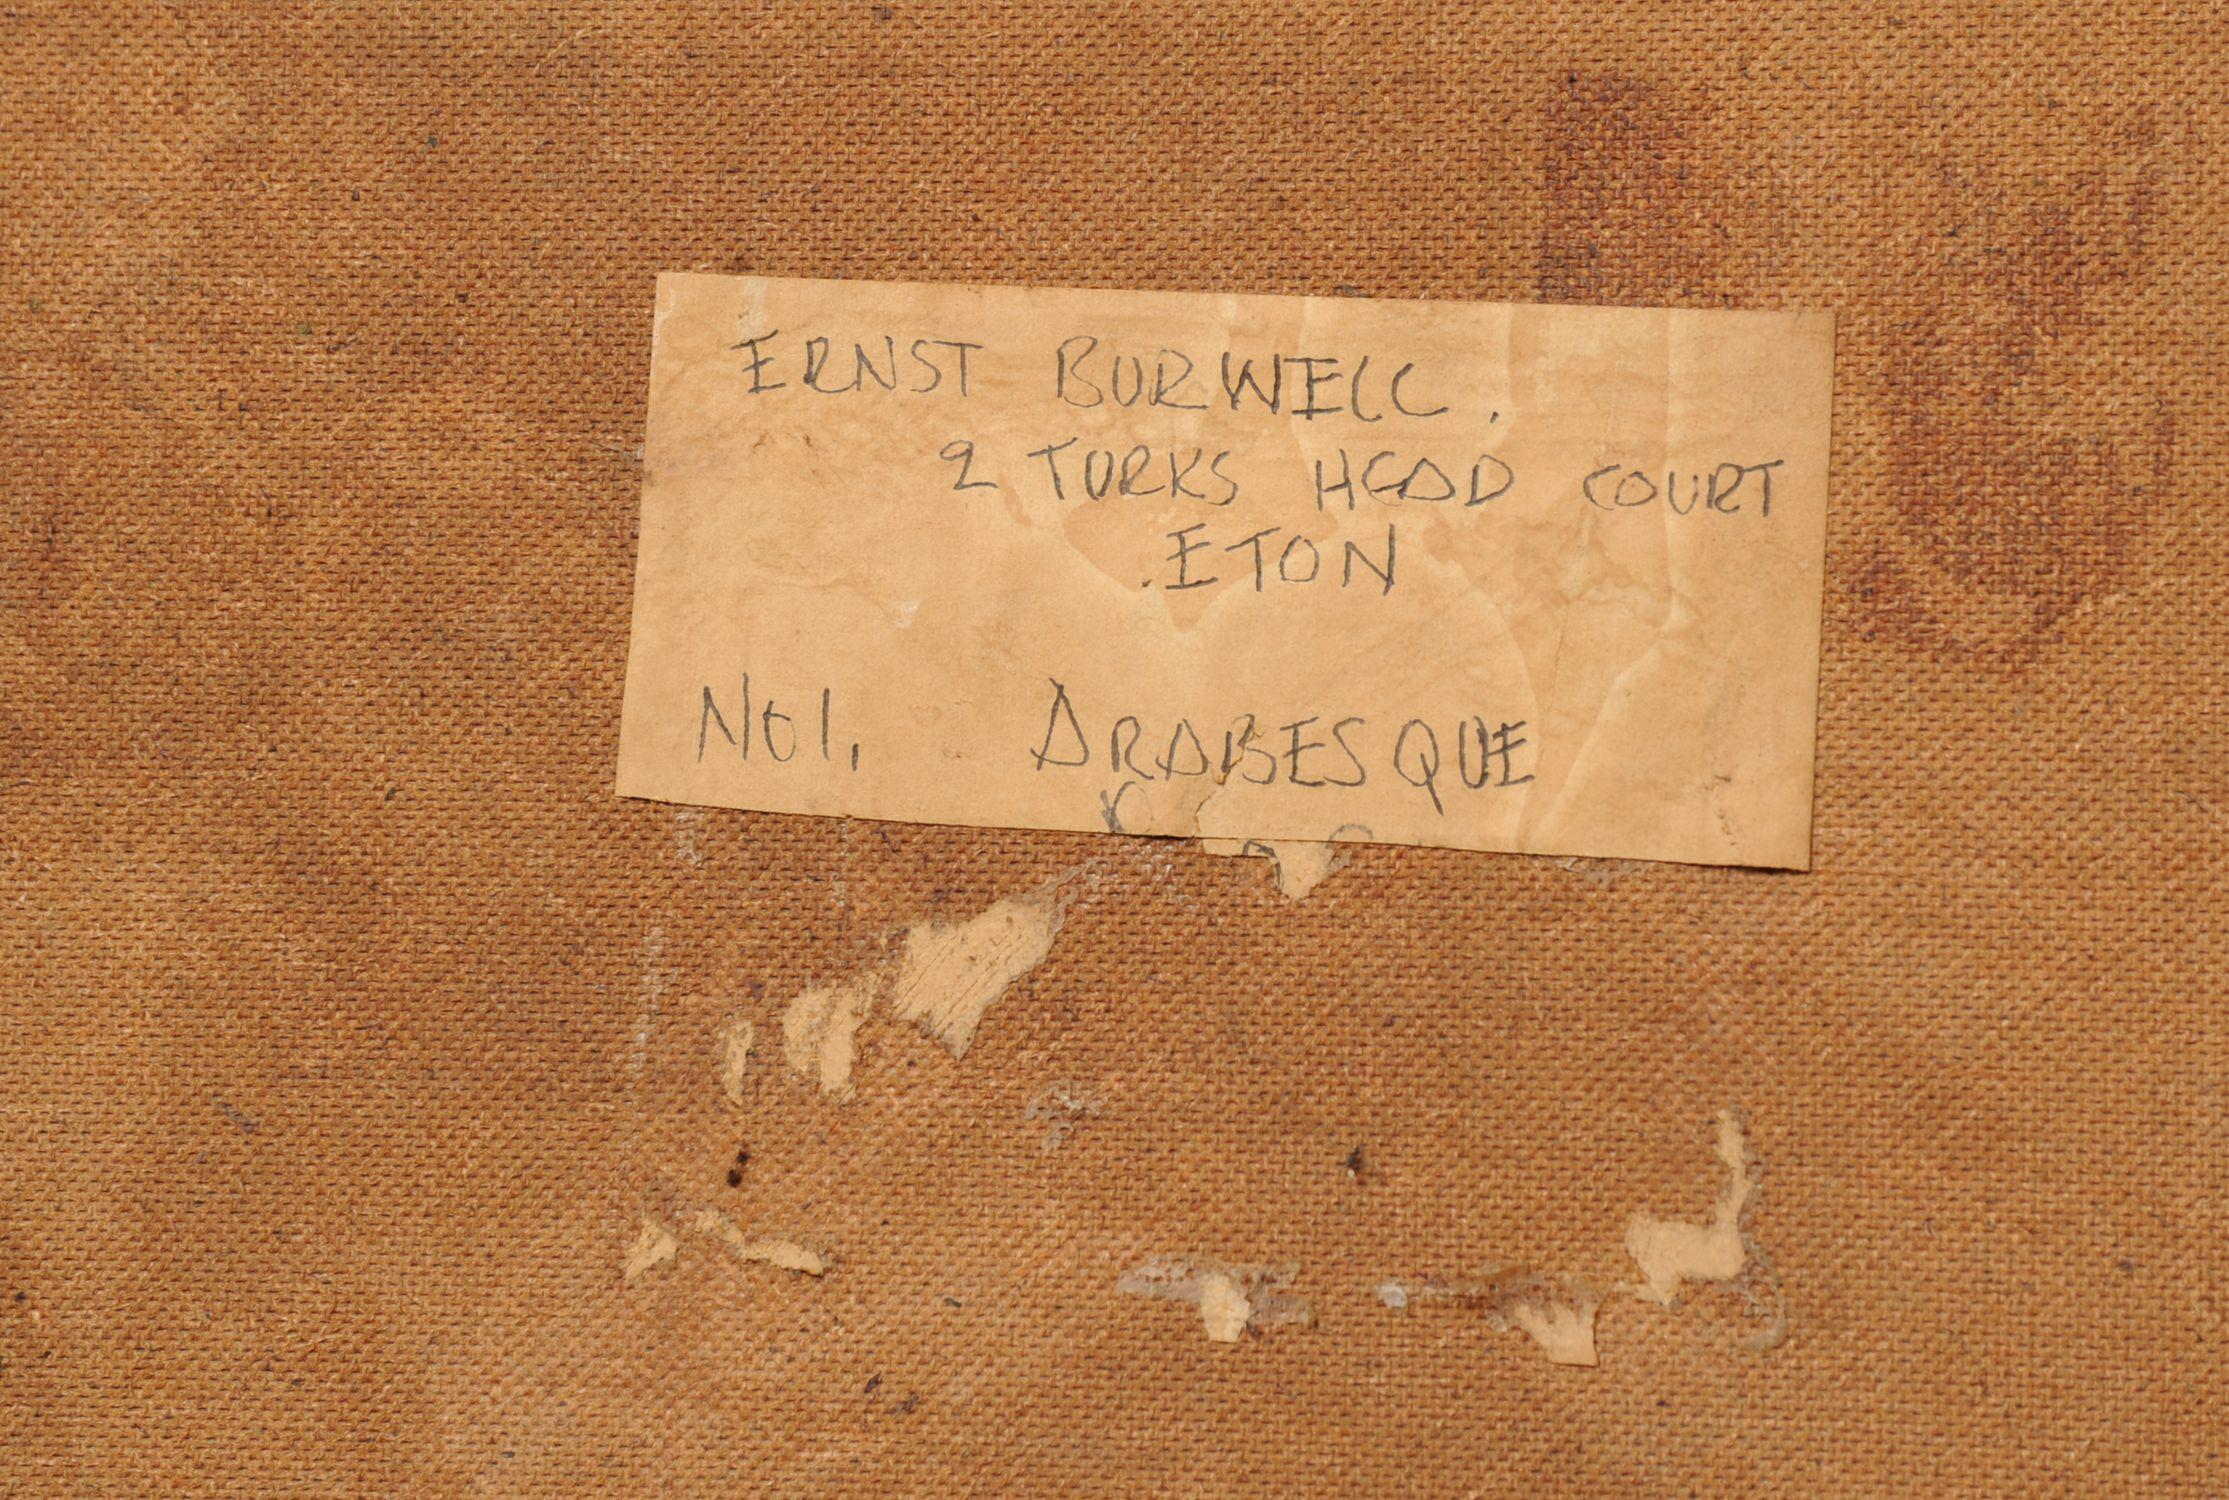 ERNST BURWELL.
2 TURKS HEAD COURT
.ETON
No 1. ARABESQUE